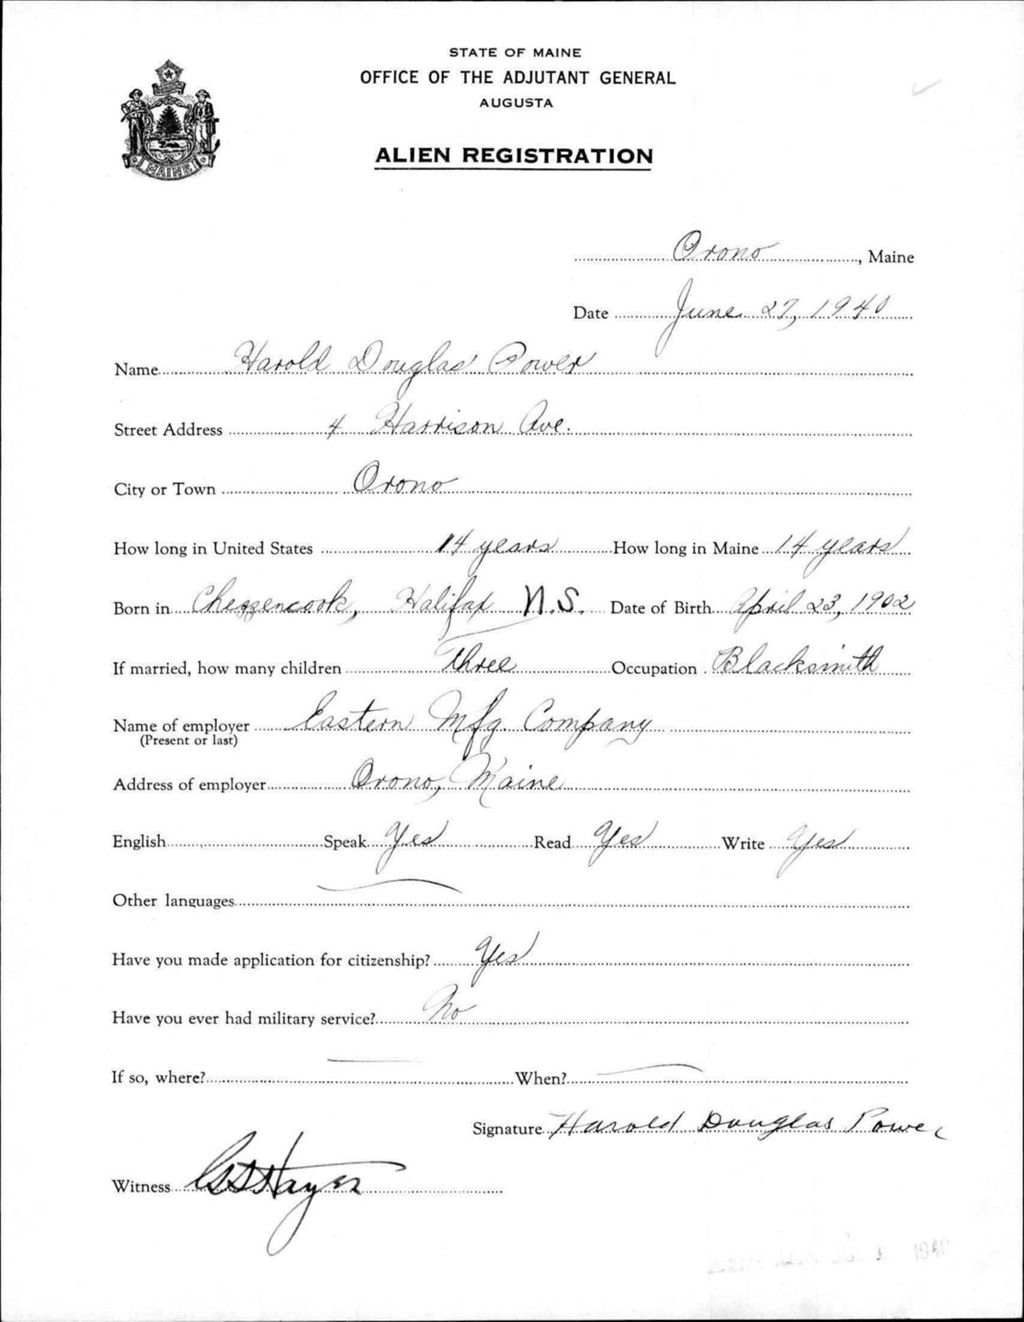 STATE OF MAINE
OFFICE OF THE ADJUTANT GENERAL
AUGUSTA
ALIEN REGISTRATION
MAINE
Orono, Maine
Date June 27, 1940
Name Harold Douglas Power
Street Address 4 Harrison Ave.
City or Town Orono
How long in United States 14 years How long in Maine 14 years
Born in Chezzencook, Halifax N.S. Date of Birth April 23, 1902
If married, how many children Three Occupation Blacksmith
Name of employer Eastern Mfg. Company
(Present or last)
Address of employer Orono, Maine
English Speak Yes Read Yes Write Yes
Other languages
Have you made application for citizenship? Yes
Have you ever had military service? No
If so, where? When?
Signature Harold Douglas Power
Witness Hayes